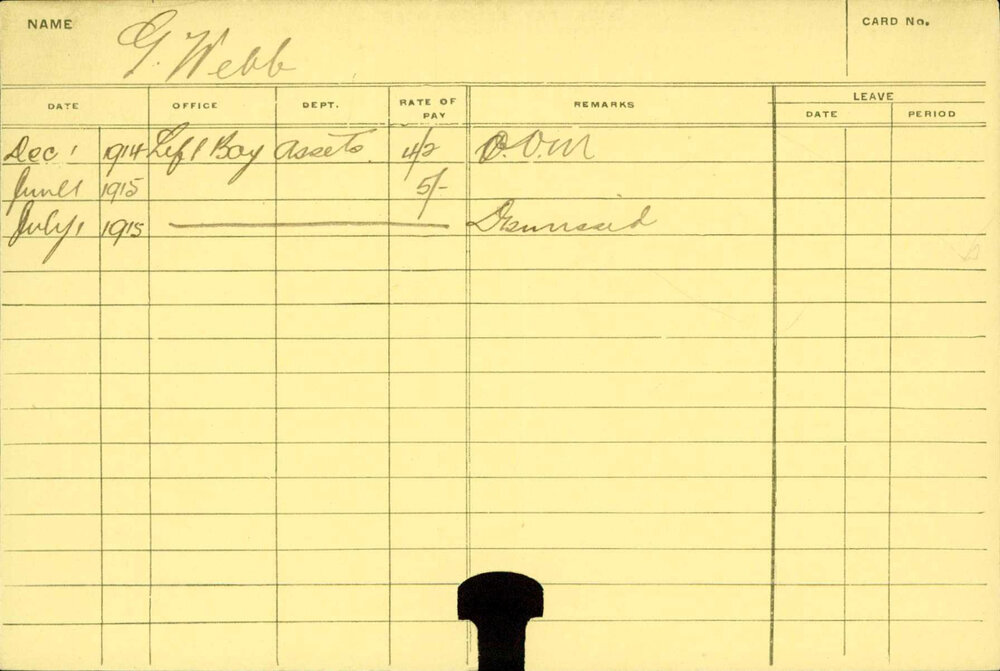 NAME G. Webb CARD No.
DATE OFFICE DEPT. RATE OF PAY REMARKS LEAVE
DATE PERIOD
Dec 1 1914 Left Boy Assets. 4/2 O.O.M
June 1 1915 5/-
July 1 1915 Dismissed